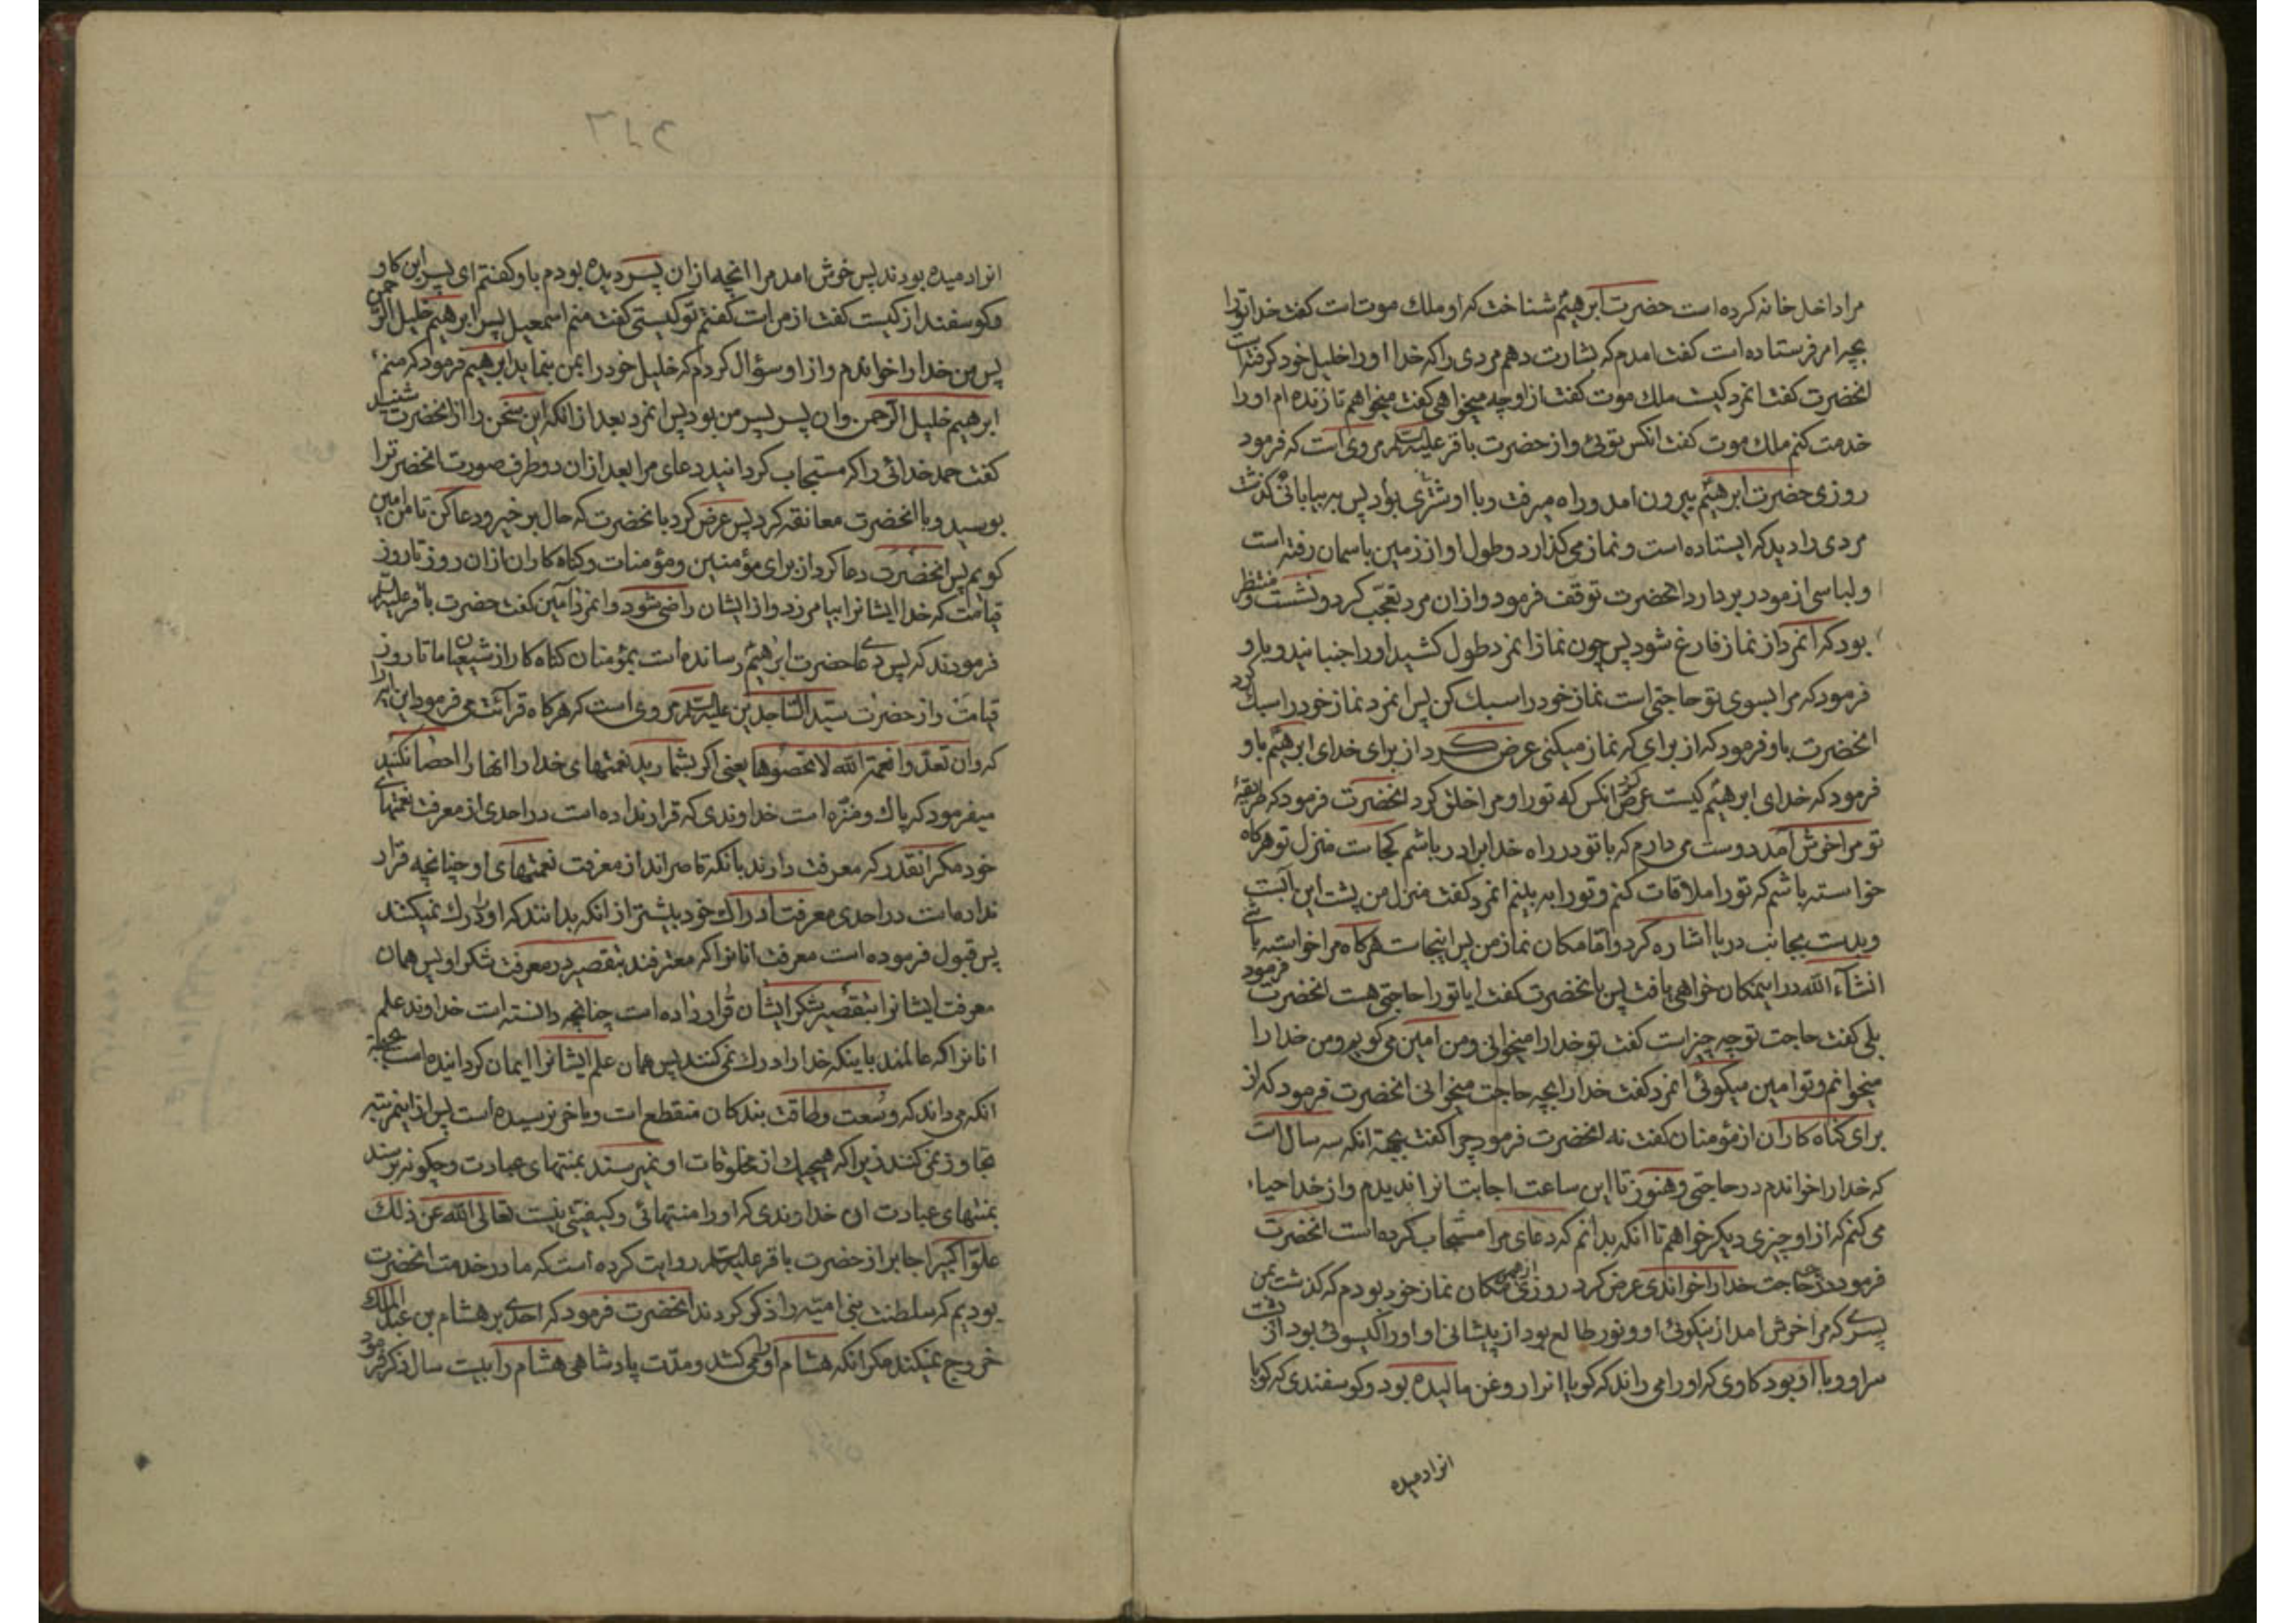 مرا داخل خانه کرده است حضرت ابرهیم شناخت که او ملک موت است کفت خدا تورا
بچه امر فرستاده است کفت امدم که بشارت دهم مردی را که خدا اورا خلیل خود کرفته است
انحضرت کفت انمرد کیست ملک موت کفت از او چه میخواهی کفت میخواهم تا زنده ام اورا
خدمت کنم ملک موت کفت انکس توئی و از حضرت باقر علیه السلام مروی است که فرمود
روزی حضرت ابرهیم بیرون امد و راه میرفت و با او شتری بود پس به بیابانی کذشت
مردی را دید که ایستاده است و نماز می کذارد و طول او از زمین باسمان رفته است
و لباسی از مو در بر دارد انحضرت توقف فرمود و از ان مرد تعجب کرد و نشست و منتظر
بود که انمرد از نماز فارغ شود پس چون نماز انمرد طول کشید اورا جنبانید و باو
فرمود که مرا بسوی تو حاجتی است نماز خود را سبک کن پس انمرد نماز خود را سبک کرد
انحضرت باو فرمود که از برای که نماز میکنی عرض کرد از برای خدای ابرهیم باو
فرمود که خدای ابرهیم کیست عرض کرد انکس که تورا و مرا خلق کرد انحضرت فرمود که طریقهٔ
تو مرا خوش امد دوست می دارم که با تو در راه خدا برادر باشم کجاست منزل تو هرکاه
خواسته باشم که تورا ملاقات کنم و تورا به بینم انمرد کفت منزل من پشت این آبست
و بدست بجانب دریا اشاره کرد و اما مکان نماز من پس اینجاست هرکاه مرا خواسته باشی
انشآء الله در اینمکان خواهی یافت پس بانحضرت کفت ایا تورا حاجتی هست انحضرت فرمود
بلی کفت حاجت تو چه چیز است کفت تو خدا را میخوانی و من امین می کویم و من خدا را
میخوانم و تو امین میکوئی انمرد کفت خدا را بچه حاجت میخوانی انحضرت فرمود که از
برای کناه کاران از مؤمنان کفت نه انحضرت فرمود چرا کفت بجهة انکه سه سال است
که خدا را خواندم در حاجتی و هنوز تا این ساعت اجابت انرا ندیدم و از خدا حیاء
می کنم که از او چیزی دیکر خواهم تا انکه بدانم که دعای مرا مستجاب کرده است انحضرت
فرمود در چه حاجت خدا را خواندی عرض کرد روزی در همین مکان نماز خود بودم که کذشت بمن
پسری که مرا خوش امد از نیکوئی او و نور طالع بود از پیشانی او و اورا کیسوئی بود از پشت
سر او و با او بود کاوی که اورا می راند که کویا انرا روغن مالیده بود و کوسفندی که کویا
انرا دمیده
انرا دمیده بودند پس خوش امد مرا انچه از ان پسر دیده بودم باو کفتم ای پسر این کاو
و کوسفند از کیست کفت از من است کفتم تو کیستی کفت منم اسمعیل پسر ابرهیم خلیل الرحمن
پس من خدا را خواندم و از او سؤال کردم که خلیل خود را بمن بنماید ابرهیم فرمود که منم
ابرهیم خلیل الرحمن و ان پسر پسر من بود پس انمرد بعد از انکه این سخن را از انحضرت شنید
کفت حمد خدائی را که مستجاب کردانید دعای مرا بعد از ان دو طرف صورت انحضرترا
بوسید و با انحضرت معانقه کرد پس عرض کرد بانحضرت که حال بر خیز و دعا کن تا من امین
کویم پس انحضرت دعا کرد از برای مؤمنین و مؤمنات و کناه کاران از ان روز تا روز
قیامت که خدا ایشانرا بیامرزد و از ایشان راضی شود و انمرد آمین کفت حضرت باقر علیه السلام
فرمودند که پس دعای حضرت ابرهیم رسانده است بمؤمنان کناه کار از شیعیان ما تا روز
قیامت و از حضرت سید الساجدین علیه السلام مروی است که هرکاه قرآئت می فرمود این آیه را
که و ان تعدوا نعمة الله لا تحصوها یعنی اکر بشمارید نعمتهای خدا را انها را احصا نکنید
میفرمود که پاک و منزه است خداوندی که قرار نداده است در احدی از معرفت نعمتهای
خود مکر انقدر که معرفت دارند بانکه قاصراند از معرفت نعمتهای او چنانچه قرار
نداده است در احدی معرفت ادراک خود بیشتر از انکه بدانند که اورا درک نمیکنند
پس قبول فرموده است معرفت انانرا که معترفند بتقصیر در معرفت شکر او پس همان
معرفت ایشانرا بتقصیر شکر ایشان قرار داده است چنانچه دانسته است خداوند علم
انانرا که عالمند باینکه خدا را درک نمی کنند پس همان علم ایشانرا ایمان کردانیده است بجهة
انکه می داند که وسعت و طاقت بندکان منقطع است و باخر نرسیده است پس از اینمرتبه
تجاوز نمی کنند زیرا که هیچیک از مخلوقات او نمیرسند بمنتهای عبادت و چکونه برسند
بمنتهای عبادت ان خداوندی که اورا منتهائی و کیفیتی نیست تعالی الله عن ذلک
علوا کبیرا جابر از حضرت باقر علیه السلام روایت کرده است که ما در خدمت انحضرت
بودیم که سلطنت بنی امیه را ذکر کردند انحضرت فرمود که احدی بر هشام بن عبدالملک
خروج نمیکند مکر انکه هشام اورا می کشد و مدت پادشاهی هشام را بیست سال ذکر فرمود